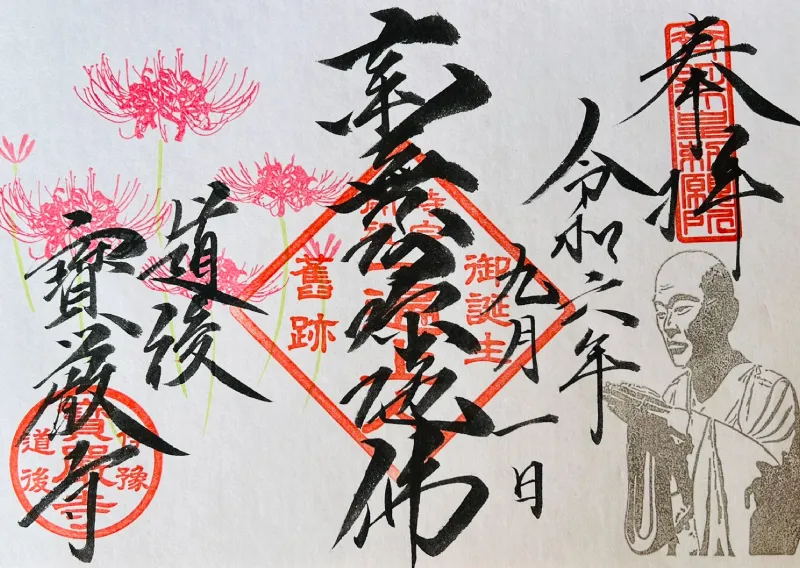 奉拝
令和六年
九月一日
御誕生
南無阿弥陀佛
舊跡
道後
寳厳寺
伊豫
寶嚴寺
道後